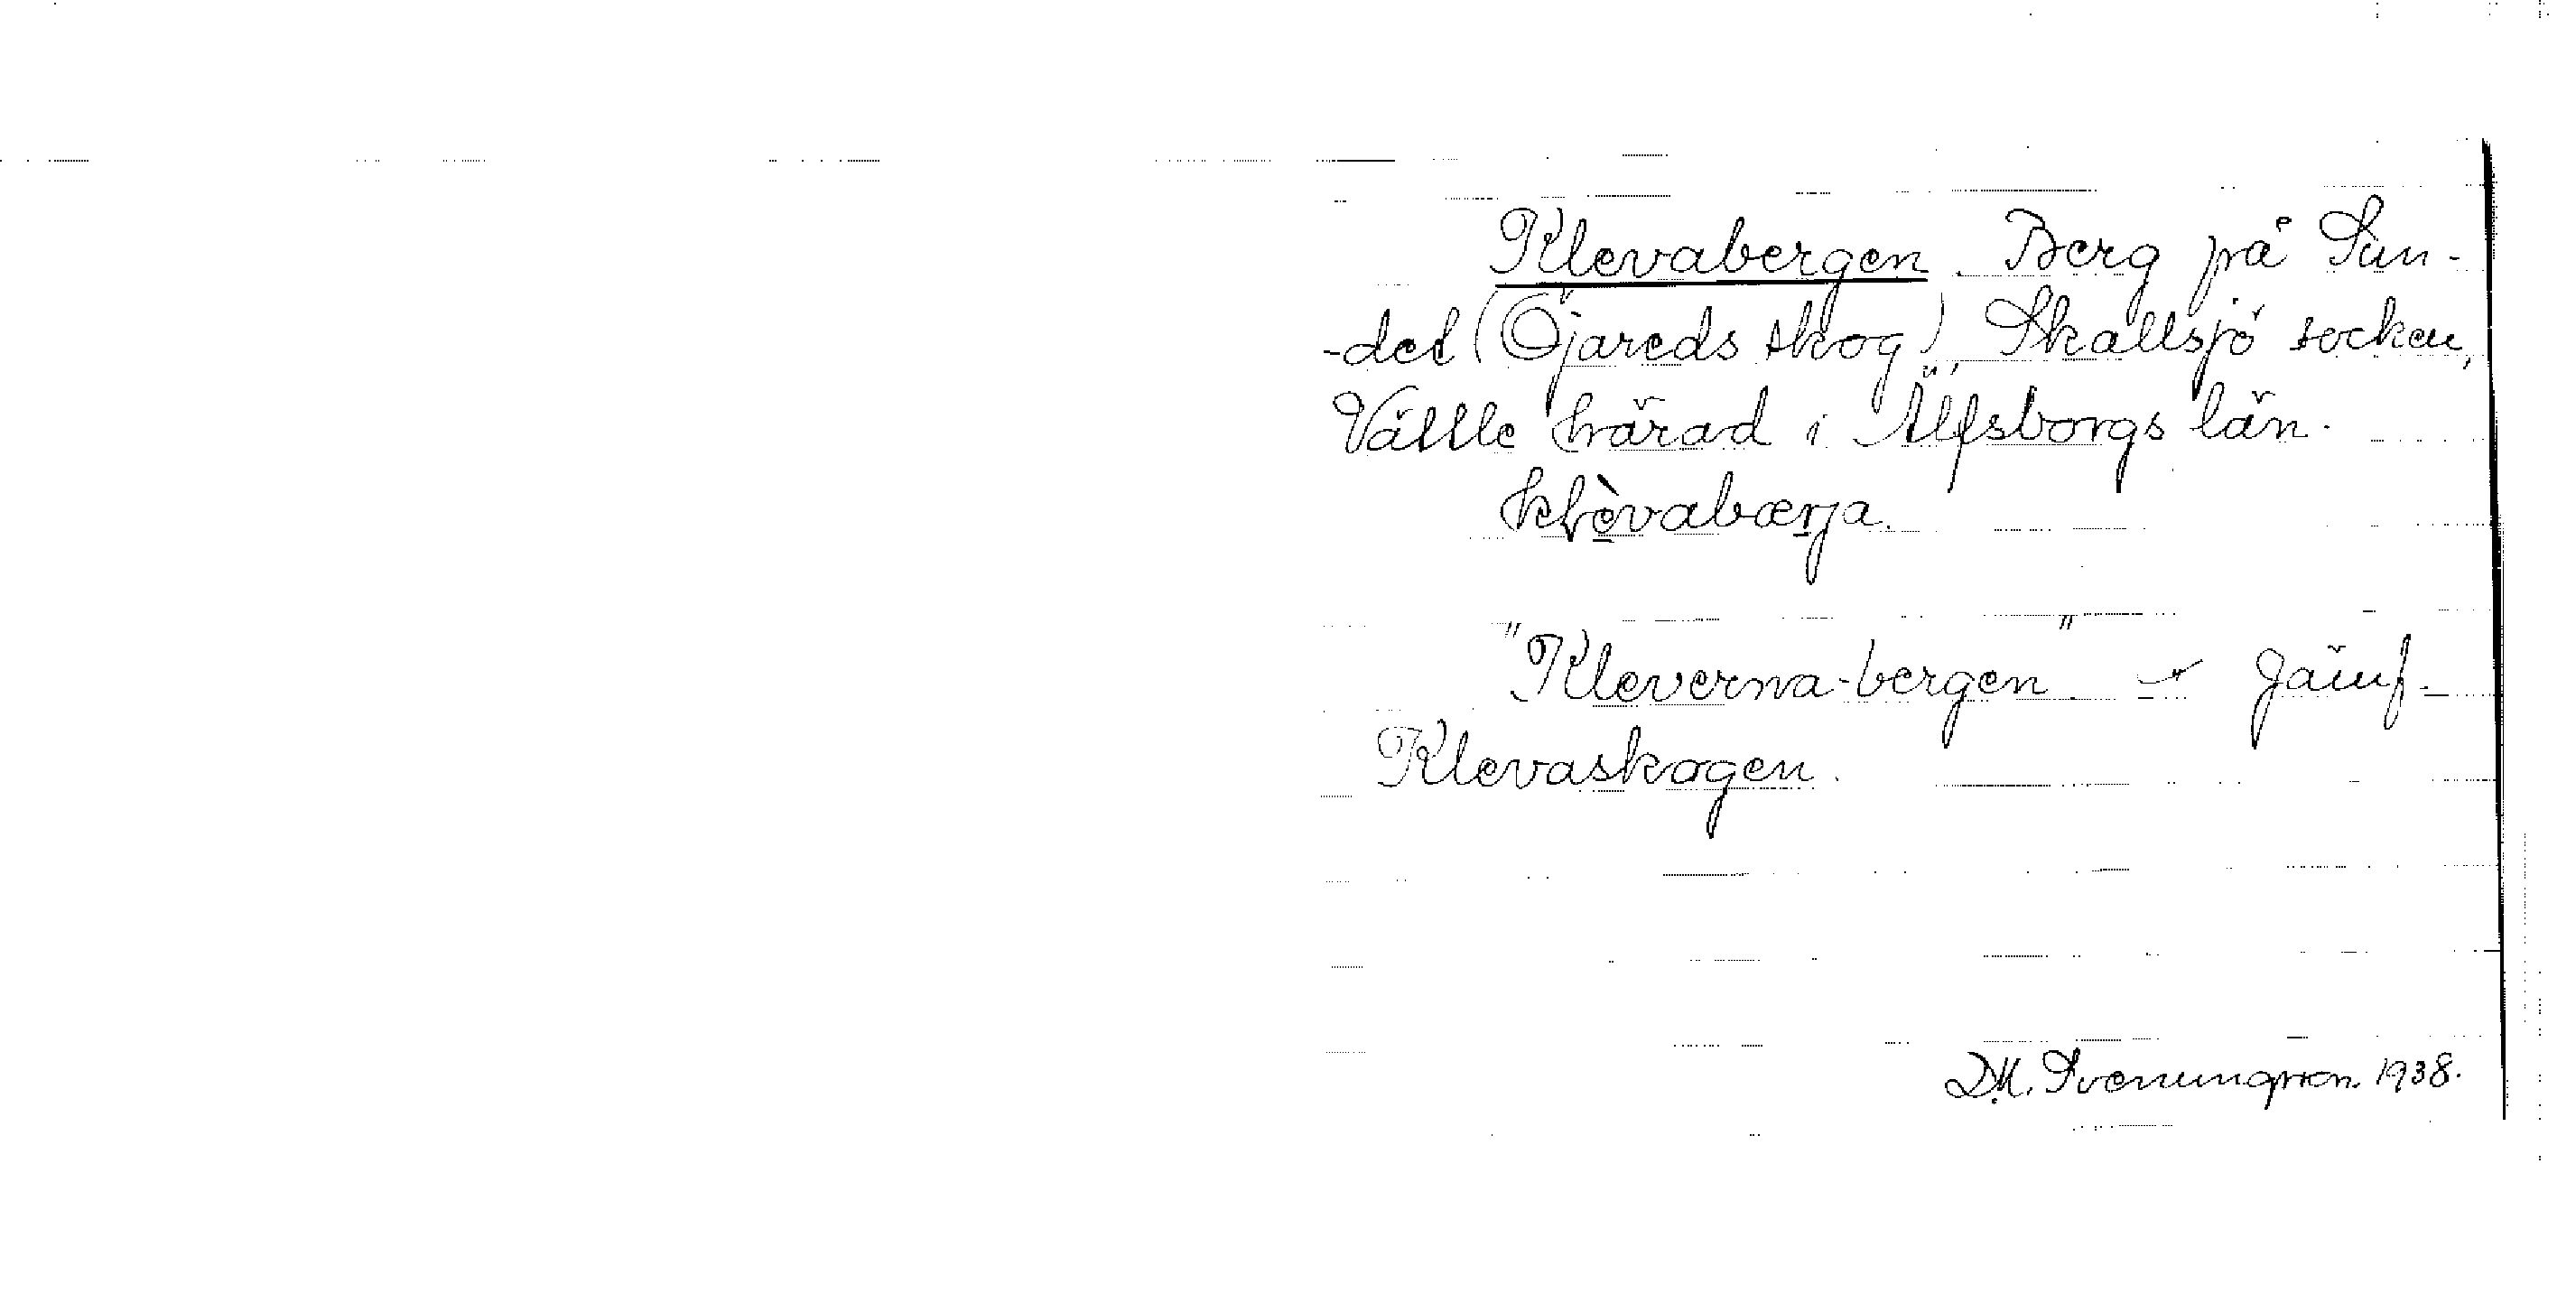 Klevabergen. Berg på Sun-
-det (Öjareds skog), Skallsjö socken,
Vättle härad i Älfsborgs län.
klèvabærja.
"Kleverna-bergen". - Jämf.
Klevaskogen.
D.M. Svenungsson. 1938.